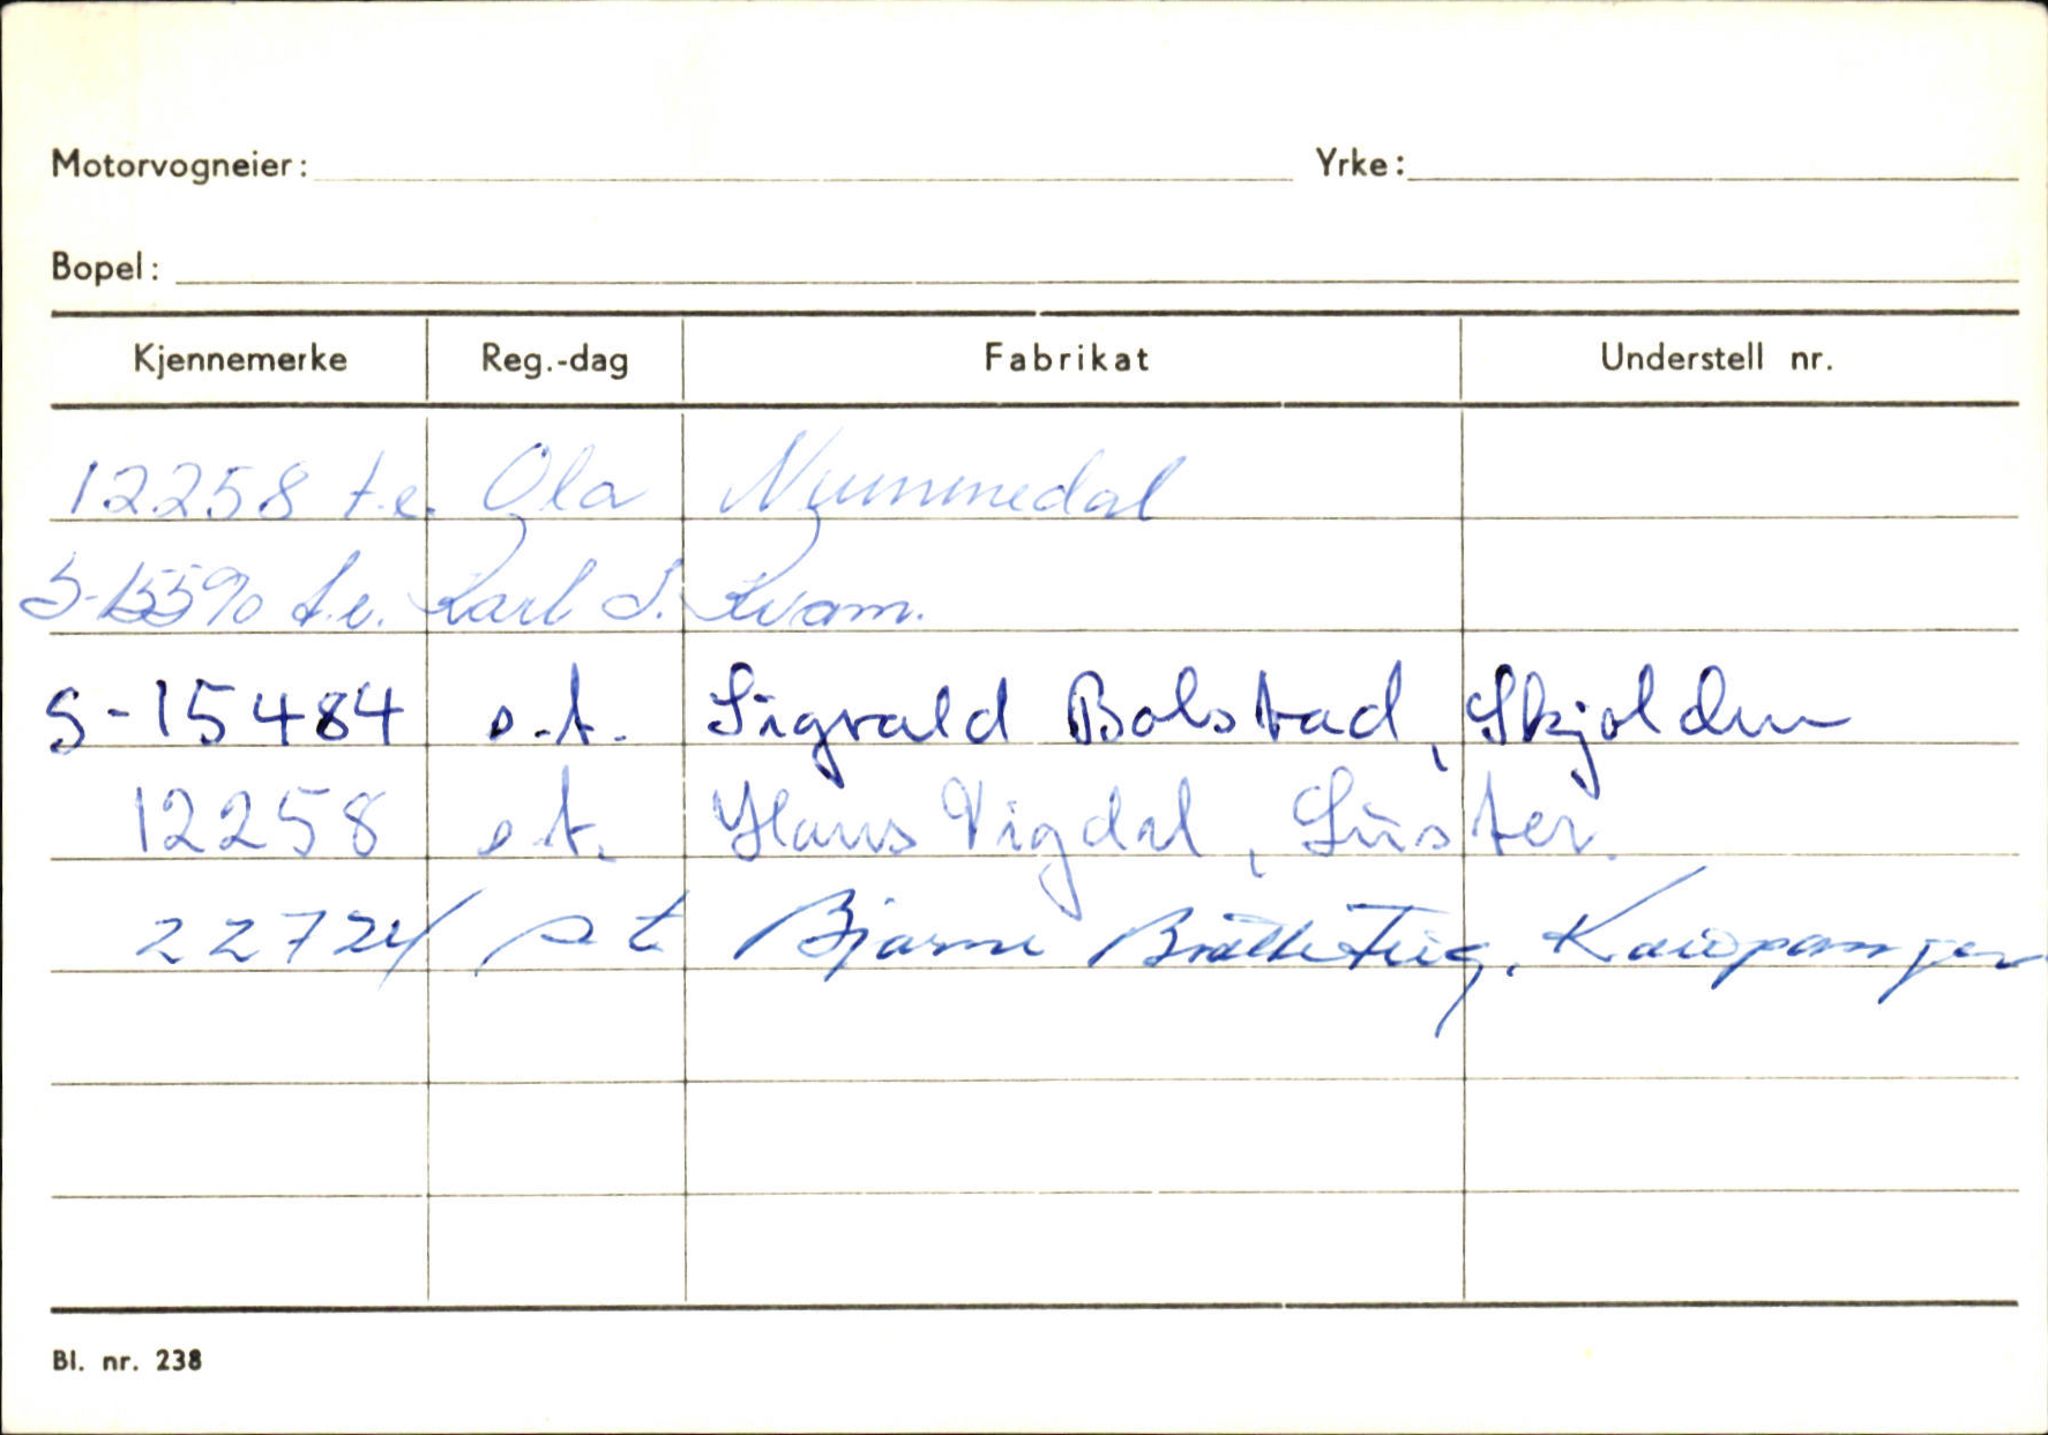 Motorvogneier: Yrke:
Bopel:
Kjennemerke Reg.-dag Fabrikat Understell nr.
12258 t.e. Ola Nummedal
S-15590 t.e. Karl S. Kvam.
S-15484 s.t. Sigvald Bolstad, Skjolden
12258 s.t. Hans Vigdal, Luster.
22724 s t Bjarne Bråtteteig, Kaupanger
Bl. nr. 238